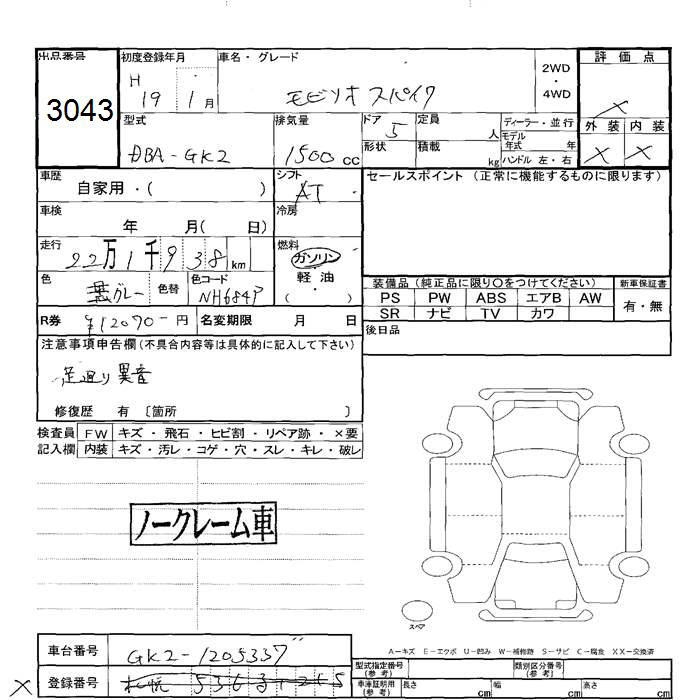 出品番号
3043
初度登録年月
H
19 1月
車名・グレード
モビリオ スパイク
2WD
・
4WD
評価点
×
外装 内装
× ×
型式
DBA-GK2
排気量
1500 cc
ドア 5
形状
定員 人
積載 kg
ディーラー・並行
モデル年式 年
ハンドル 左・右
車歴
自家用・( )
シフト
AT
セールスポイント (正常に機能するものに限ります)
車検
年 月( 日)
冷房
走行
22万1千938km
燃料
ガソリン
軽油
( )
色
グレー
色替
色コード
NH684P
装備品 (純正品に限り○をつけてください)
PS PW ABS エアB AW
SR ナビ TV カワ
新車保証書
有・無
R券 ¥12070-円
名変期限 月 日
後日品
注意事項申告欄(不具合内容等は具体的に記入して下さい)
足廻り異音
修復歴 有 〔箇所 〕
検査員 FW キズ・飛石・ヒビ割・リペア跡・×要
記入欄 内装 キズ・汚レ・コゲ・穴・スレ・キレ・破レ
ノークレーム車
スペア
A-キズ E-エクボ U-凹み W-補修跡 S-サビ C-腐食 XX-交換済
車台番号
GK2-1205337
× 登録番号
札幌
型式指定番号
(参考)
類別区分番号
(参考)
車庫証明用
(参考)
長さ cm 幅 cm 高さ cm